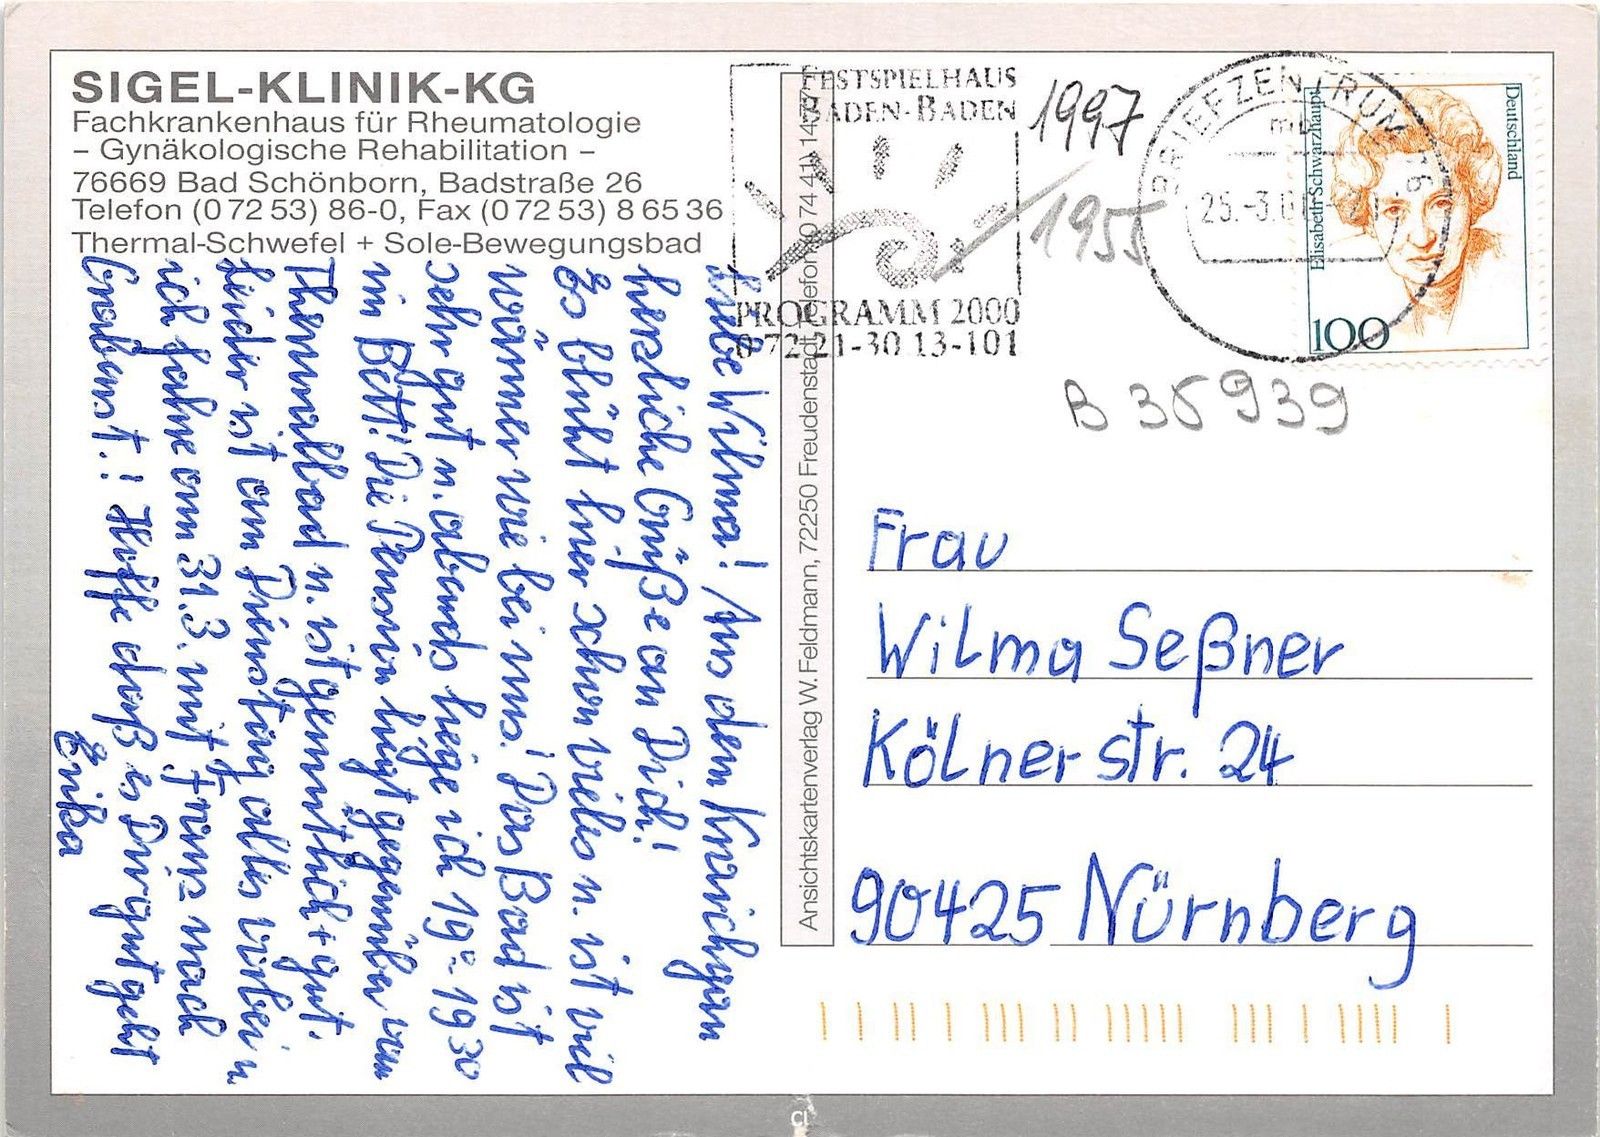 SIGEL-KLINIK-KG
Fachkrankenhaus für Rheumatologie
– Gynäkologische Rehabilitation –
76669 Bad Schönborn, Badstraße 26
Telefon (0 72 53) 86-0, Fax (0 72 53) 8 65 36
Thermal-Schwefel + Sole-Bewegungsbad
Liebe Wilma! Aus dem Kraichgau
herzliche Grüße an Dich!
Es blüht hier schon vieles u. ist viel
wärmer wie bei uns! Das Bad ist
sehr gut u. abends liege ich 19⁰⁰-19³⁰
im Bett! Die Pension liegt gegenüber vom
Thermalbad u. ist gemütlich + gut.
Leider ist am Dienstag alles vorbei u.
ich fahre am 31.3. mit nach
Grabenst.! Hoffe daß es Dir gut geht
Erika
Ansichtskartenverlag W. Feldmann, 72250 Freudenstadt, Telefon (0 74 41) 14 77
FESTSPIELHAUS
BADEN-BADEN
PROGRAMM 2000
0 72 21-30 13-101
1997
1955
BRIEFZENTRUM 76
25.-3.
Deutschland
Elisabeth Schwarzhaupt
100
B 36939
Frau
Wilma Seßner
Kölner str. 24
90425 Nürnberg
CL